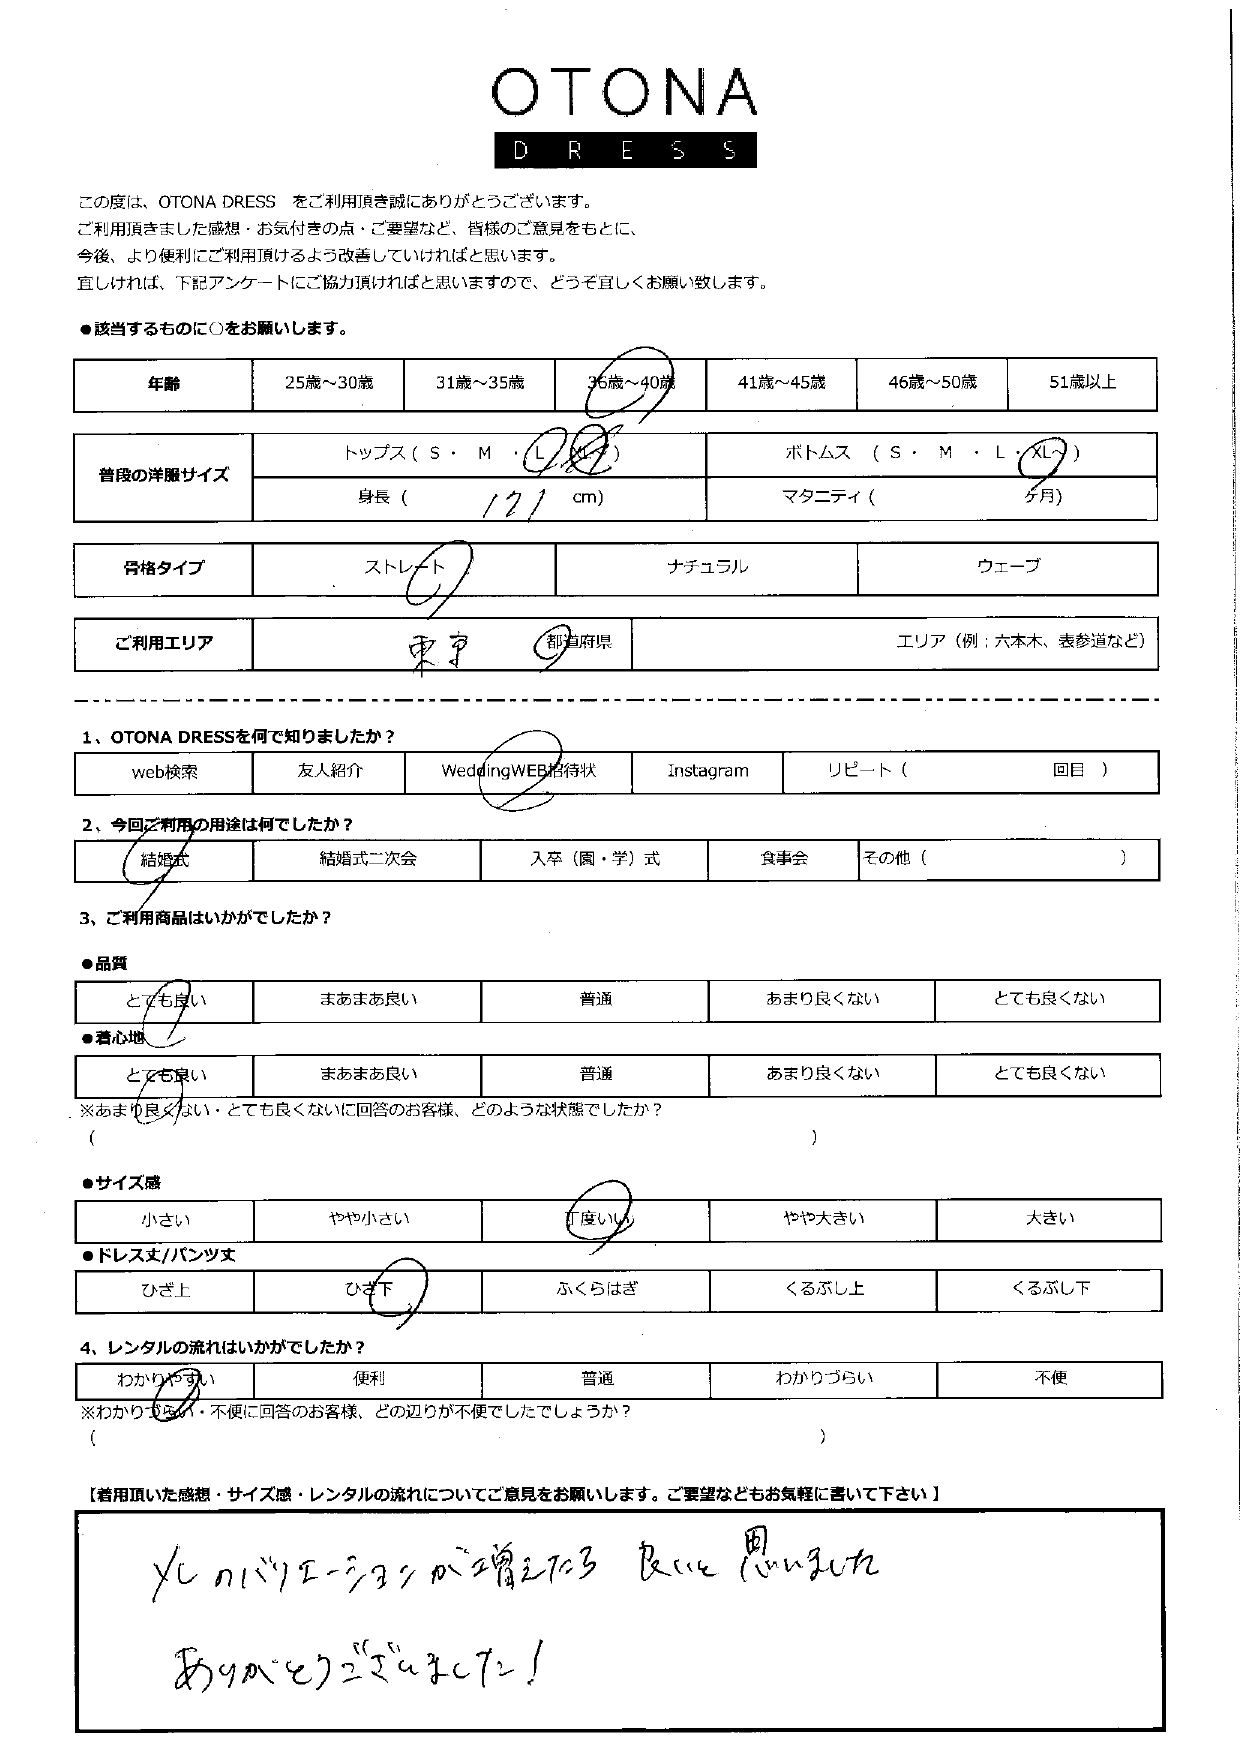 OTONA
DRESS
この度は、OTONA DRESS をご利用頂き誠にありがとうございます。
ご利用頂きました感想・お気付きの点・ご要望など、皆様のご意見をもとに、
今後、より便利にご利用頂けるよう改善していければと思います。
宜しければ、下記アンケートにご協力頂ければと思いますので、どうぞ宜しくお願い致します。
●該当するものに○をお願いします。
年齢 25歳～30歳 31歳～35歳 36歳～40歳 41歳～45歳 46歳～50歳 51歳以上
普段の洋服サイズ トップス ( S ・ M ・ L ) ボトムス ( S ・ M ・ L ・ XL～ )
身長 ( 171 cm) マタニティ ( ヶ月)
骨格タイプ ストレート ナチュラル ウェーブ
ご利用エリア 東京 都道府県 エリア（例；六本木、表参道など）
1、OTONA DRESSを何で知りましたか？
web検索 友人紹介 WeddingWEB招待状 Instagram リピート ( 回目 )
2、今回ご利用の用途は何でしたか？
結婚式 結婚式二次会 入卒（園・学）式 食事会 その他 ( )
3、ご利用商品はいかがでしたか？
●品質
とても良い まあまあ良い 普通 あまり良くない とても良くない
●着心地
とても良い まあまあ良い 普通 あまり良くない とても良くない
※あまり良くない・とても良くないに回答のお客様、どのような状態でしたか？
( )
●サイズ感
小さい やや小さい 丁度いい やや大きい 大きい
●ドレス丈/パンツ丈
ひざ上 ひざ下 ふくらはぎ くるぶし上 くるぶし下
4、レンタルの流れはいかがでしたか？
わかりやすい 便利 普通 わかりづらい 不便
※わかりづらい・不便に回答のお客様、どの辺りが不便でしたでしょうか？
( )
【着用頂いた感想・サイズ感・レンタルの流れについてご意見をお願いします。ご要望などもお気軽に書いて下さい】
XLのバリエーションが増えたら 良いと思いました
ありがとうございました！